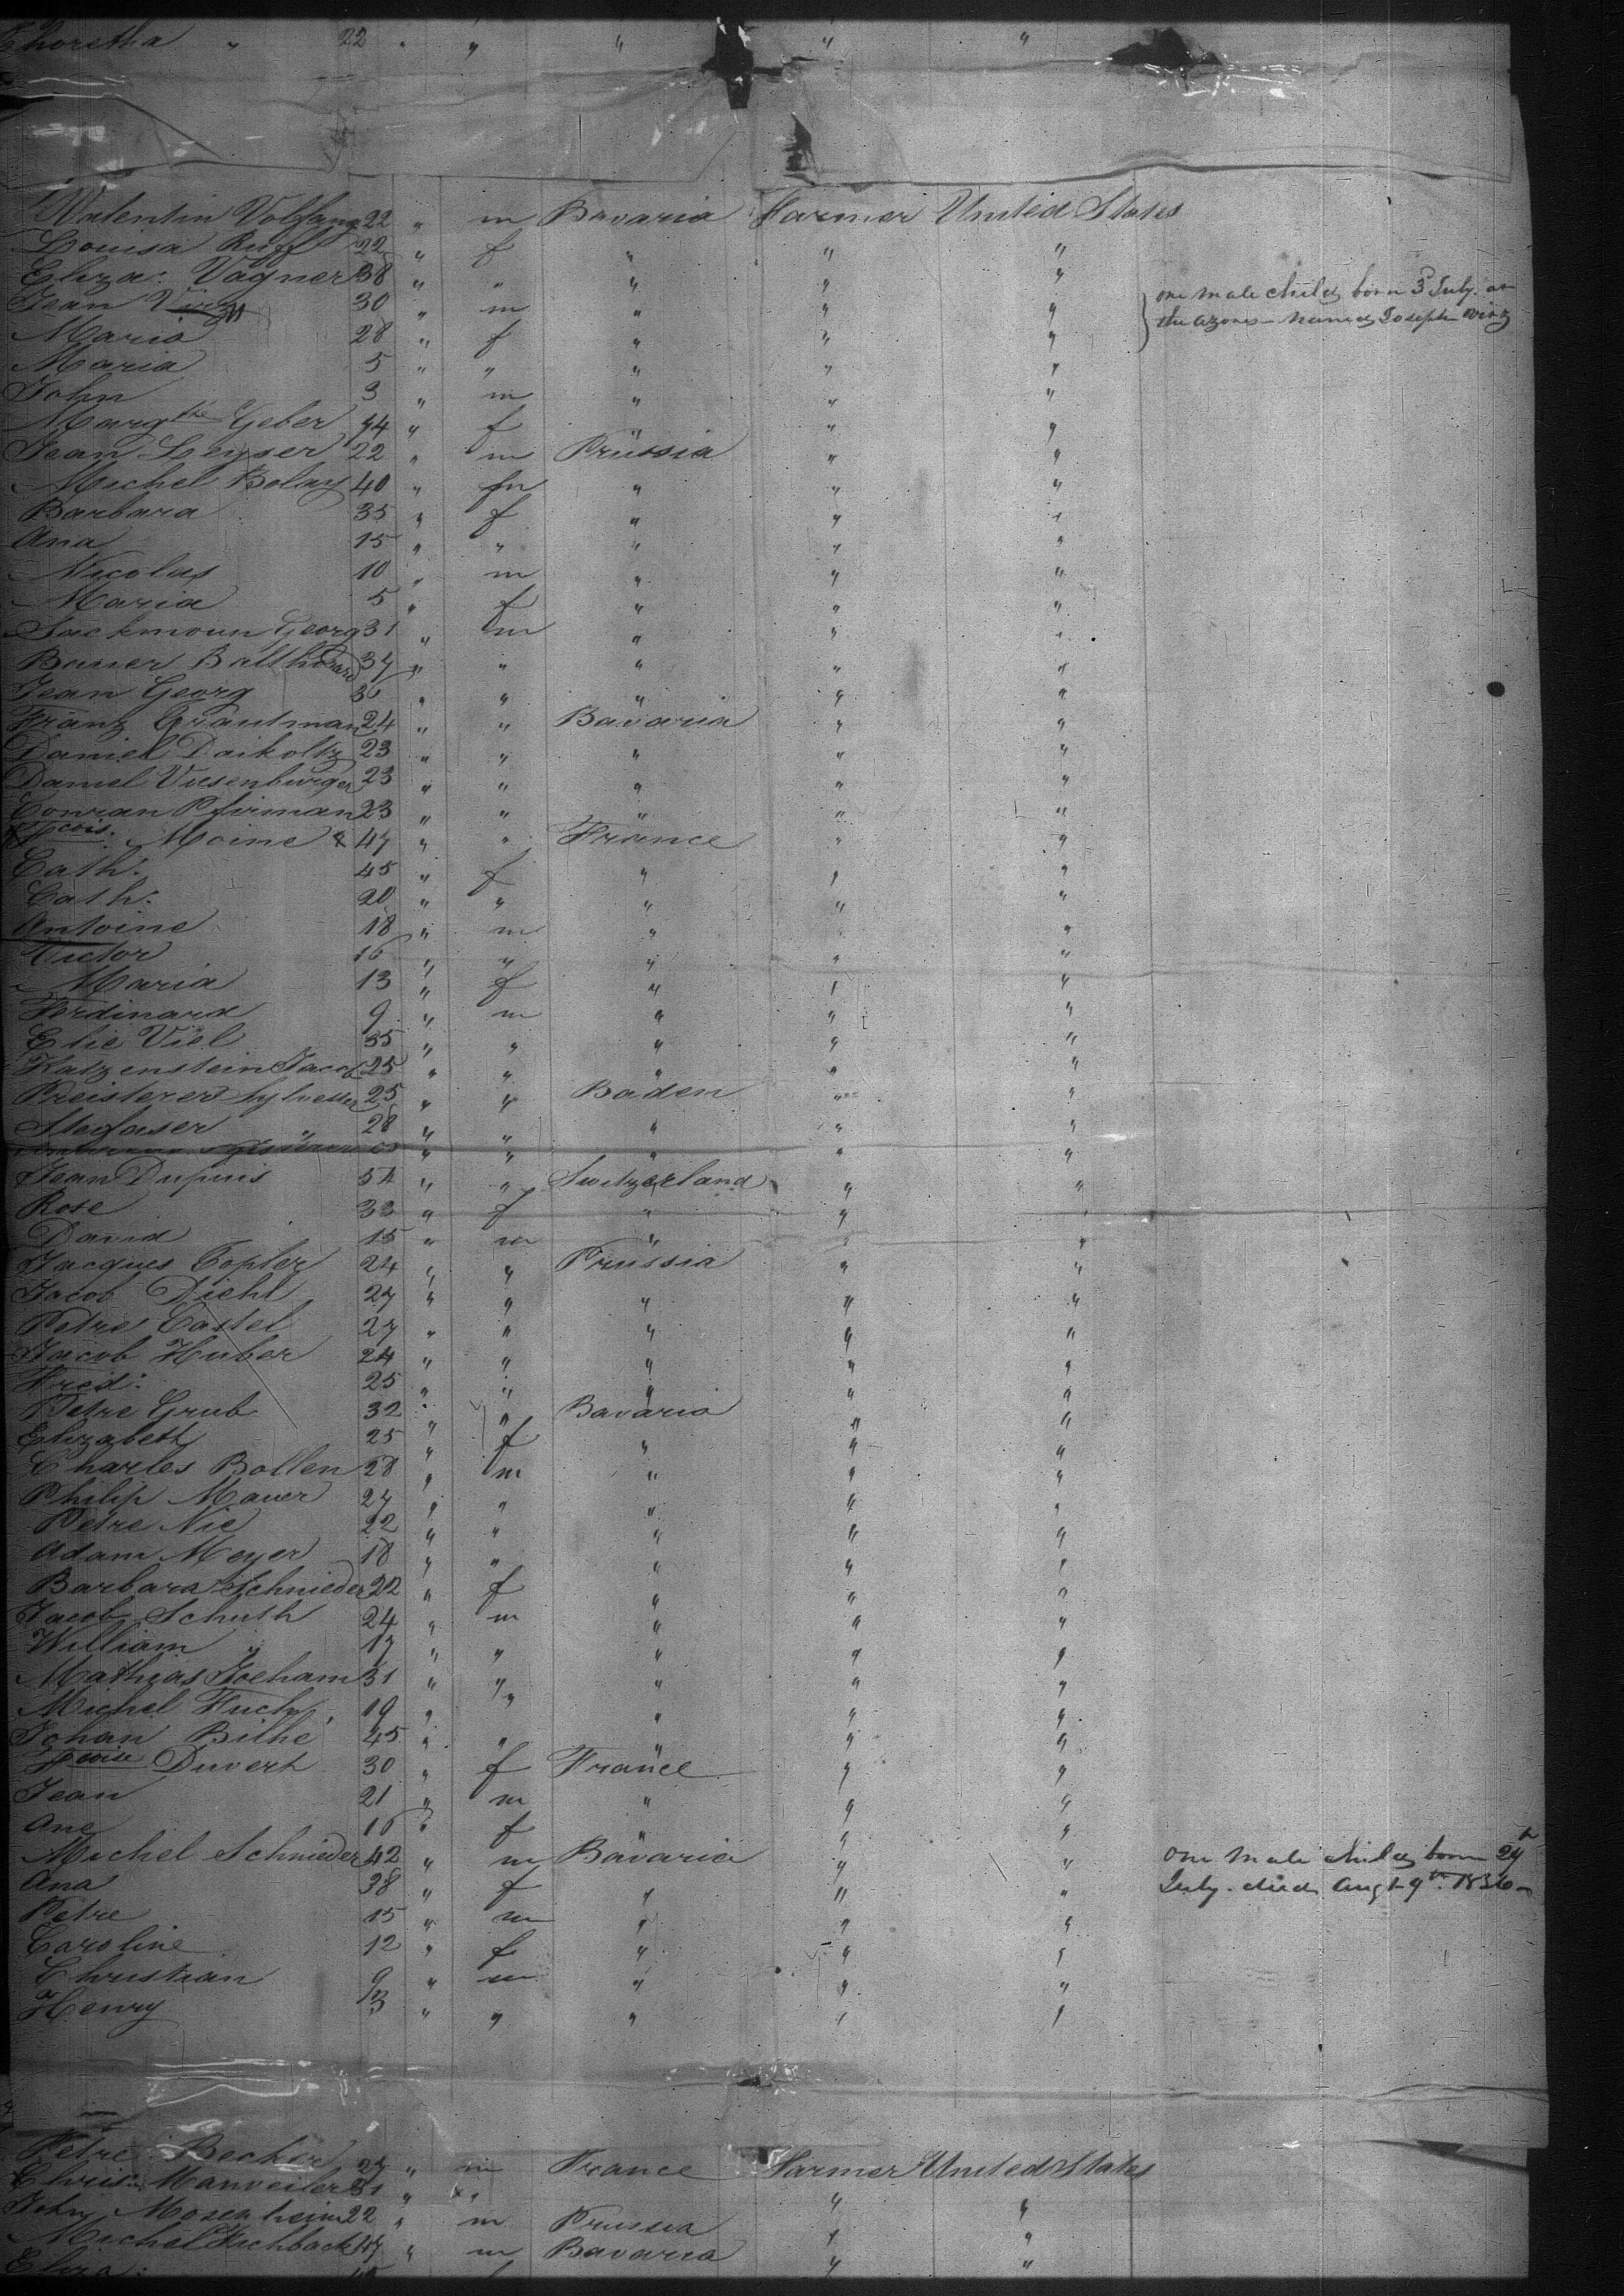 Choretha " 22 " " " " "
Valentin Volfgang 22 " m Bavaria Farmer United States
Louisa Ruff 22 " f " " "
Eliza: Vagner 38 " " " " "
Jean 30 " m " " "
one male child born 3d July. at
the azores - named Joseph Wirz
Maria 28 " f " " "
Maria 5 " " " " "
John 3 " m " " "
Margthe Geber 44 " f " " "
Jean Leyser 22 " m Prussia " "
Michel Bolay 40 " m " " "
Barbara 35 " f " " "
Ana 15 " " " " "
Nicolas 10 " m " " "
Maria 5 " f " " "
Sackmoun Georg 31 " m " " "
Bauer Balthasard 34 " " " " "
Jean Georg 36 " " " " "
Franz Grautman 24 " " Bavaria " "
Daniel Daikoltz 23 " " " " "
Daniel Viesenburger 23 " " " " "
Conran Pfirman 23 " " " " "
Fcois. Moine & 47 " " France " "
Cath: 45 " f " " "
Cath: 20 " " " " "
Antoine 18 " m " "
Victor 16 " " " " "
Maria 13 " f " " "
Ferdinard 9 " m " " "
Elie Viel 35 " " " " "
Katzenstein Jacob 25 " " " " "
Preisterer Sylvester 25 " " Baden " "
Stegaser " 28 " " " " "
" " " " "
Jean Dupuis 54 " " Switzerland " "
Rose 33 " f " " "
David 15 " m " " "
Jacques Topler 24 " " Prussia " "
Jacob Diehl 27 " " " " "
Petre Castel 27 " " " " "
Jacob Huber 24 " " " " "
Fred: 25 " " " " "
Petre Grub 32 " " Bavaria " "
Elizabeth 25 " f " " "
Charles Bollen 28 " m " " "
Philip Mauer 27 " " " " "
Petre Nic 22 " " " " "
Adam Meyer 18 " " " " "
Barbara Schnieder 22 " f " " "
Jacob Schuth 24 " m " " "
William 17 " " " " "
Mathias Joeham 31 " " " " "
Michel Fuchs 19 " " " " "
Johan Bilhe 45 " " " " "
Fcoise Duvert 30 " f France " "
Jean 21 " m " " "
Ane 16 " f " " "
Michel Schnieder 42 " m Bavaria " "
one male child born 24th
July - died Augt 9th 1836 -
Ana 38 " f " " "
Petre 15 " m " " "
Caroline 12 " f " " "
Christian 9 " m " " "
Henry 3 " " " " "
Petre Becker 27 " m France Farmer United States
Chris: Manveiler 31 " " " "
John Mosenheim 22 " m Prussia " "
Michel Fichback 47 " m Bavaria " "
Eliza: